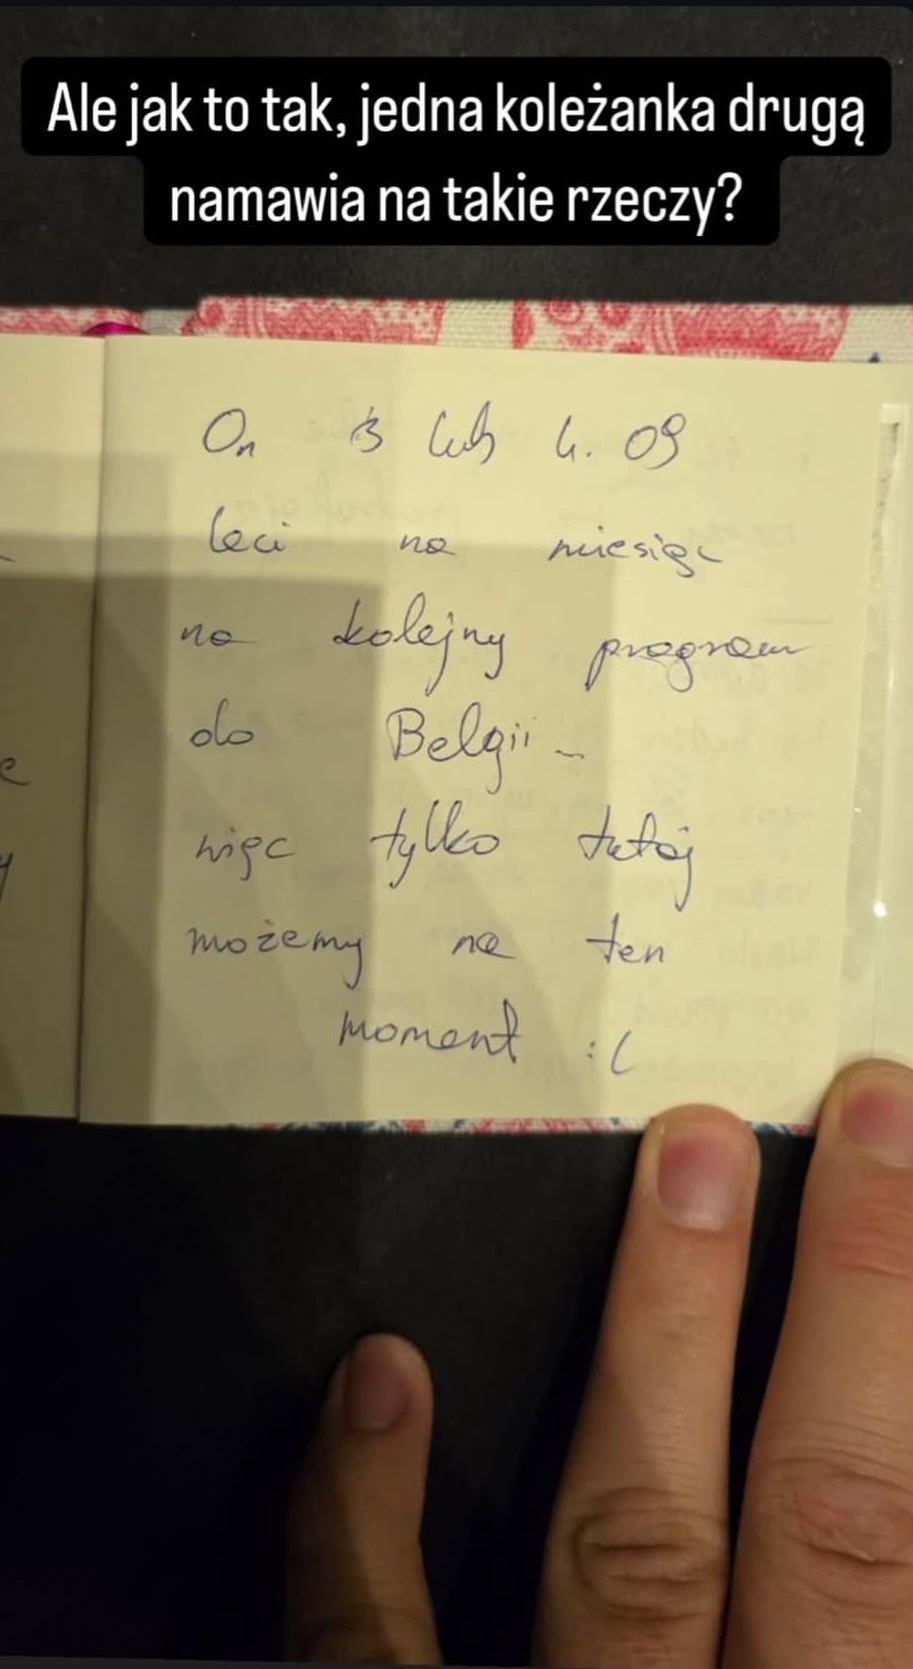 Ale jak to tak, jedna koleżanka drugą
namawia na takie rzeczy?
On 3 lub 4. 09
leci na miesiąc
na kolejny program
do Belgii -
więc tylko tutaj
możemy na ten
moment :(